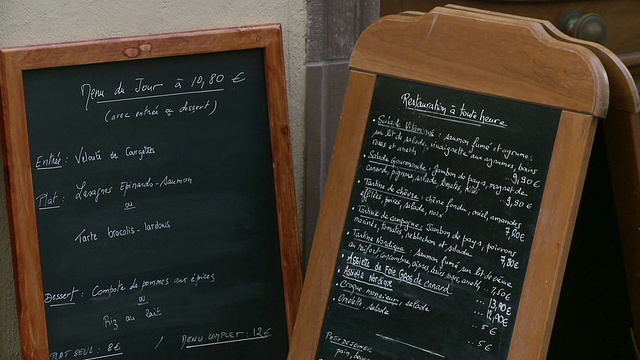 Menu du Jour à 10,80 €
(avec entrée ou dessert)
Entrée : Velouté de Courgettes
Plat : Lasagnes Epinards-Saumon
ou
Tarte brocolis-lardons
Dessert : Compote de pommes aux épices
ou
Riz au lait
PLAT SEUL : 8€ / MENU COMPLET : 12€
Restauration à toute heure
• Salade Vitaminée : saumon fumé et agrumes
sur lit de salade, vinaigrette aux agrumes, baies
roses et aneth ... 9,90 €
• Salade Gourmande : Jambon de pays, magret de
canard, pignons, salade, tomates, noix ... 9,90 €
• Tartine de chèvre : chèvre fondu, miel, amandes
effilées, poires, salade, noix 7,80€
• Tartine de campagne : Jambon de pays, poivrons
marinés, tomates, reblochon et salade 7,80€
• Tartine Nordique : Saumon fumé sur lit de crème
au raifort, concombre, câpres, baies roses, aneth ... 7,50€
• Assiette de Foie Gras de canard ... 13,90€
• Assiette Nordique ... 12,90€
• Croque monsieur, salade ... 5 €
• Omelette salade ... 5€
PETIT DEJEUNER
pain,